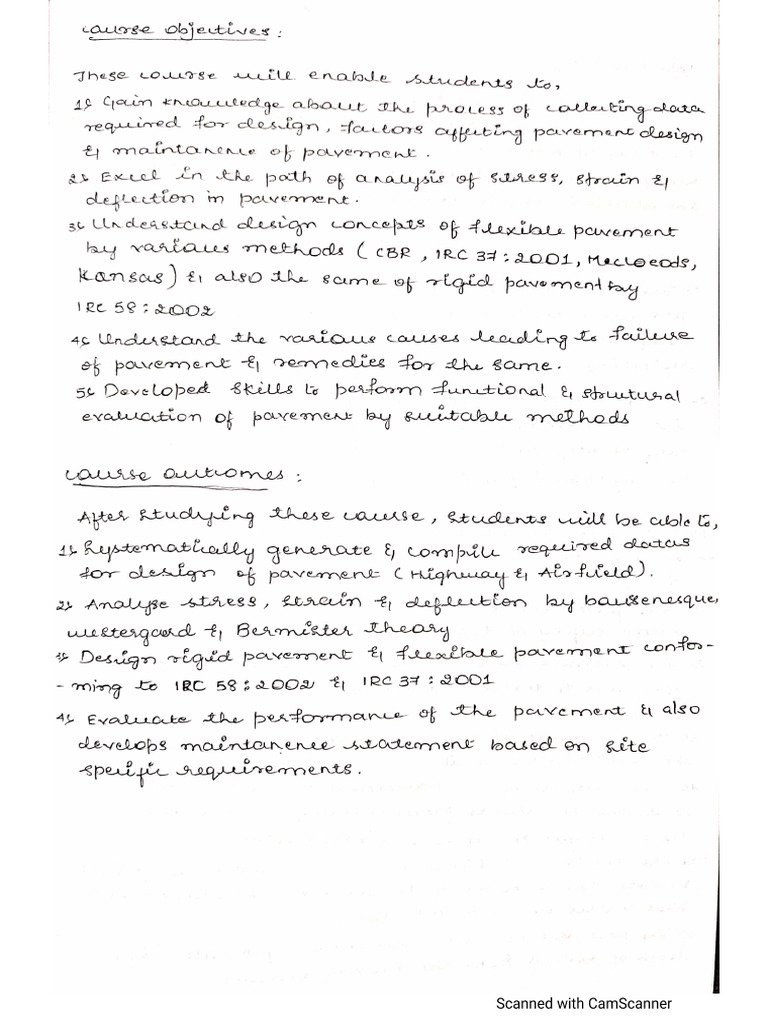 Course Objectives :
These course will enable students to,
1) Gain knowledge about the process of collecting data
required for design, factors affecting pavement design
& maintanence of pavement.
2) Excel in the path of analysis of stress, strain &
deflection in pavement.
3) Understand design concepts of flexible pavement
by various methods ( CBR , IRC 37 : 2001, Mecleods,
Kansas) & also the same of rigid pavement by
IRC 58 : 2002
4) Understand the various causes leading to failure
of pavement & remedies for the same.
5) Developed skills to perform functional & structural
evaluation of pavement by suitable methods
Course outcomes :
After studying these course, students will be able to,
1) Systematically generate & compile required datas
for design of pavement ( Highway & Airfield).
2) Analyse stress, strain & deflection by bausenesque,
westergard & Bermister theory
3) Design rigid pavement & flexible pavement confor-
- ming to IRC 58 : 2002 & IRC 37 : 2001
4) Evaluate the performance of the pavement & also
develops maintanence statement based on site
specific requirements.
Scanned with CamScanner